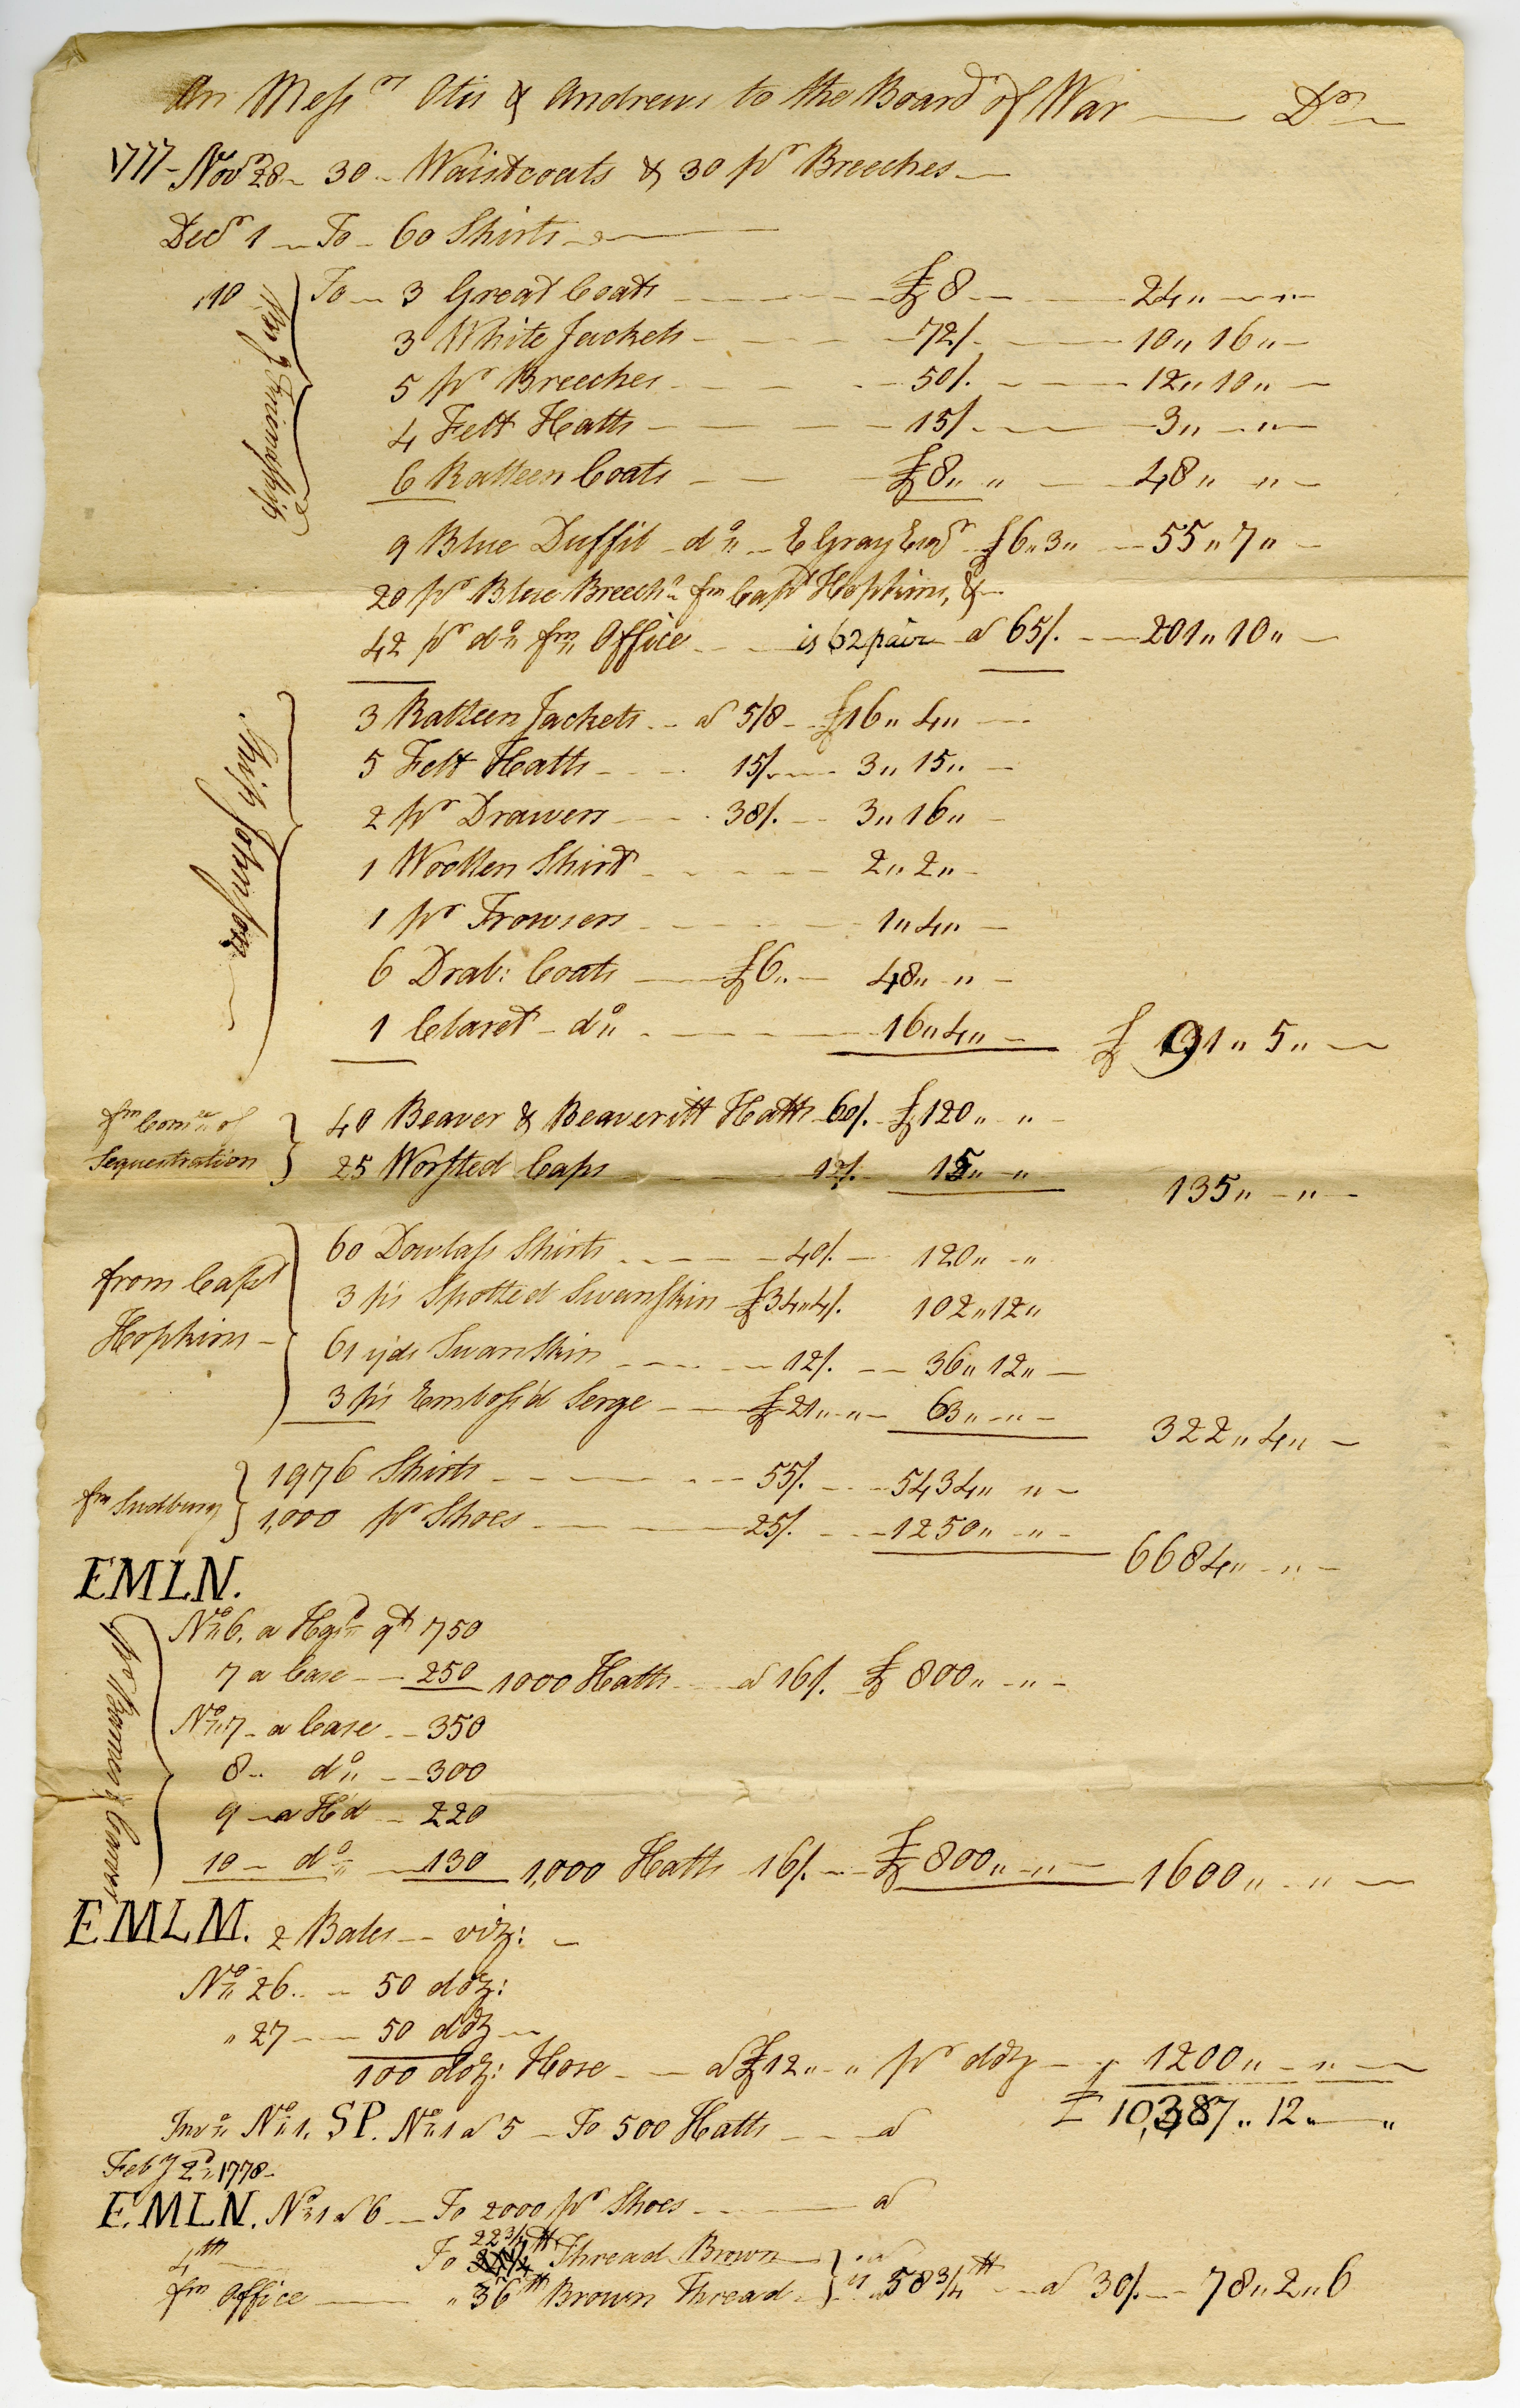 An Messrs Otis & Andrews to the Board of War — Dr
1777 - Novr 28 - 30 - Waistcoats & 30 pr Breeches
Decr 1 - To - 60 Shirts
10 To - 3 Great Coats £8 24 „ — „ —
3 White Jackets 72/. 10 „ 16 „ —
5 pr Breeches 50/. 12 „ 10 „ —
4 Felt Hatts 15/. 3 „ — „ —
6 Ratteen Coats £8 „ „ 48 „ „ —
Brig Friendship
9 Blue Duffil - do „ - E Gray Esqr £6 „ 3 „ 55 „ 7 „ —
20 pr Blue Breechs fm Capt Hopkins, &
42 pr do „ fm Office is 62 pair a 65/. 201 „ 10 „ —
Ship Johnson
3 Ratteen Jackets a 5/8 £16 „ 4 „ —
5 Felt Hatts 15/. 3 „ 15 „ —
2 pr Drawers 38/. 3 „ 16 „ —
1 Woollen Shirt 2 „ 2 „ —
1 pr Trowsers 1 „ 4 „ —
6 Drab: Coats £6 „ — 48 „ „ —
1 Claret - do „ 16 „ 4 „ — £ 91 „ 5 „ —
fm Comee of Sequestration
40 Beaver & Beaveritt Hatts 60/. £120 „ „ —
25 Worsted Caps 12/. 15 „ „ 135 „ — „ —
from Capt Hopkins
60 Dowlass Shirts 40/. 120 „ „
3 ps Spotted Swanskin £34 „ 4/. 102 „ 12 „
61 yds Swanskin 12/. 36 „ 12 „ —
3 ps Emboss'd Serge £21 „ „ — 63 „ „ — 322 „ 4 „ —
fm Sudbury
1976 Shirts 55/. 5434 „ „ —
1,000 pr Shoes 25/. 1250 „ „ — 6684 „ — „ —
EMLN.
No 6. a Hgsd qt 750
7 a Case 250 1000 Hatts a 16/. £800 „ „ —
No 7 - a Case 350
8 - do „ 300
9 - a Hd 220
10 - do „ 130 1,000 Hatts 16/. £800 „ „ — 1600 „ „ —
EMLM. 2 Bales - viz: —
No 26 - 50 doz:
„ 27 - 50 doz
100 doz: Hose a £12 „ „ pr doz 1200 „ — „ —
£ 10,387 „ 12 „ — „
Invo „ No 1. SP. No 1 a 5 - To 500 Hatts a
Feby 2d 1778 -
EMLN. No 1 a 6 - To 2000 pr Shoes a
4th To 22 3/4 lb Thread Brown a
fm Office „ 36 lb Brown Thread is 58 3/4 lb a 30/. 78 „ 2 „ 6